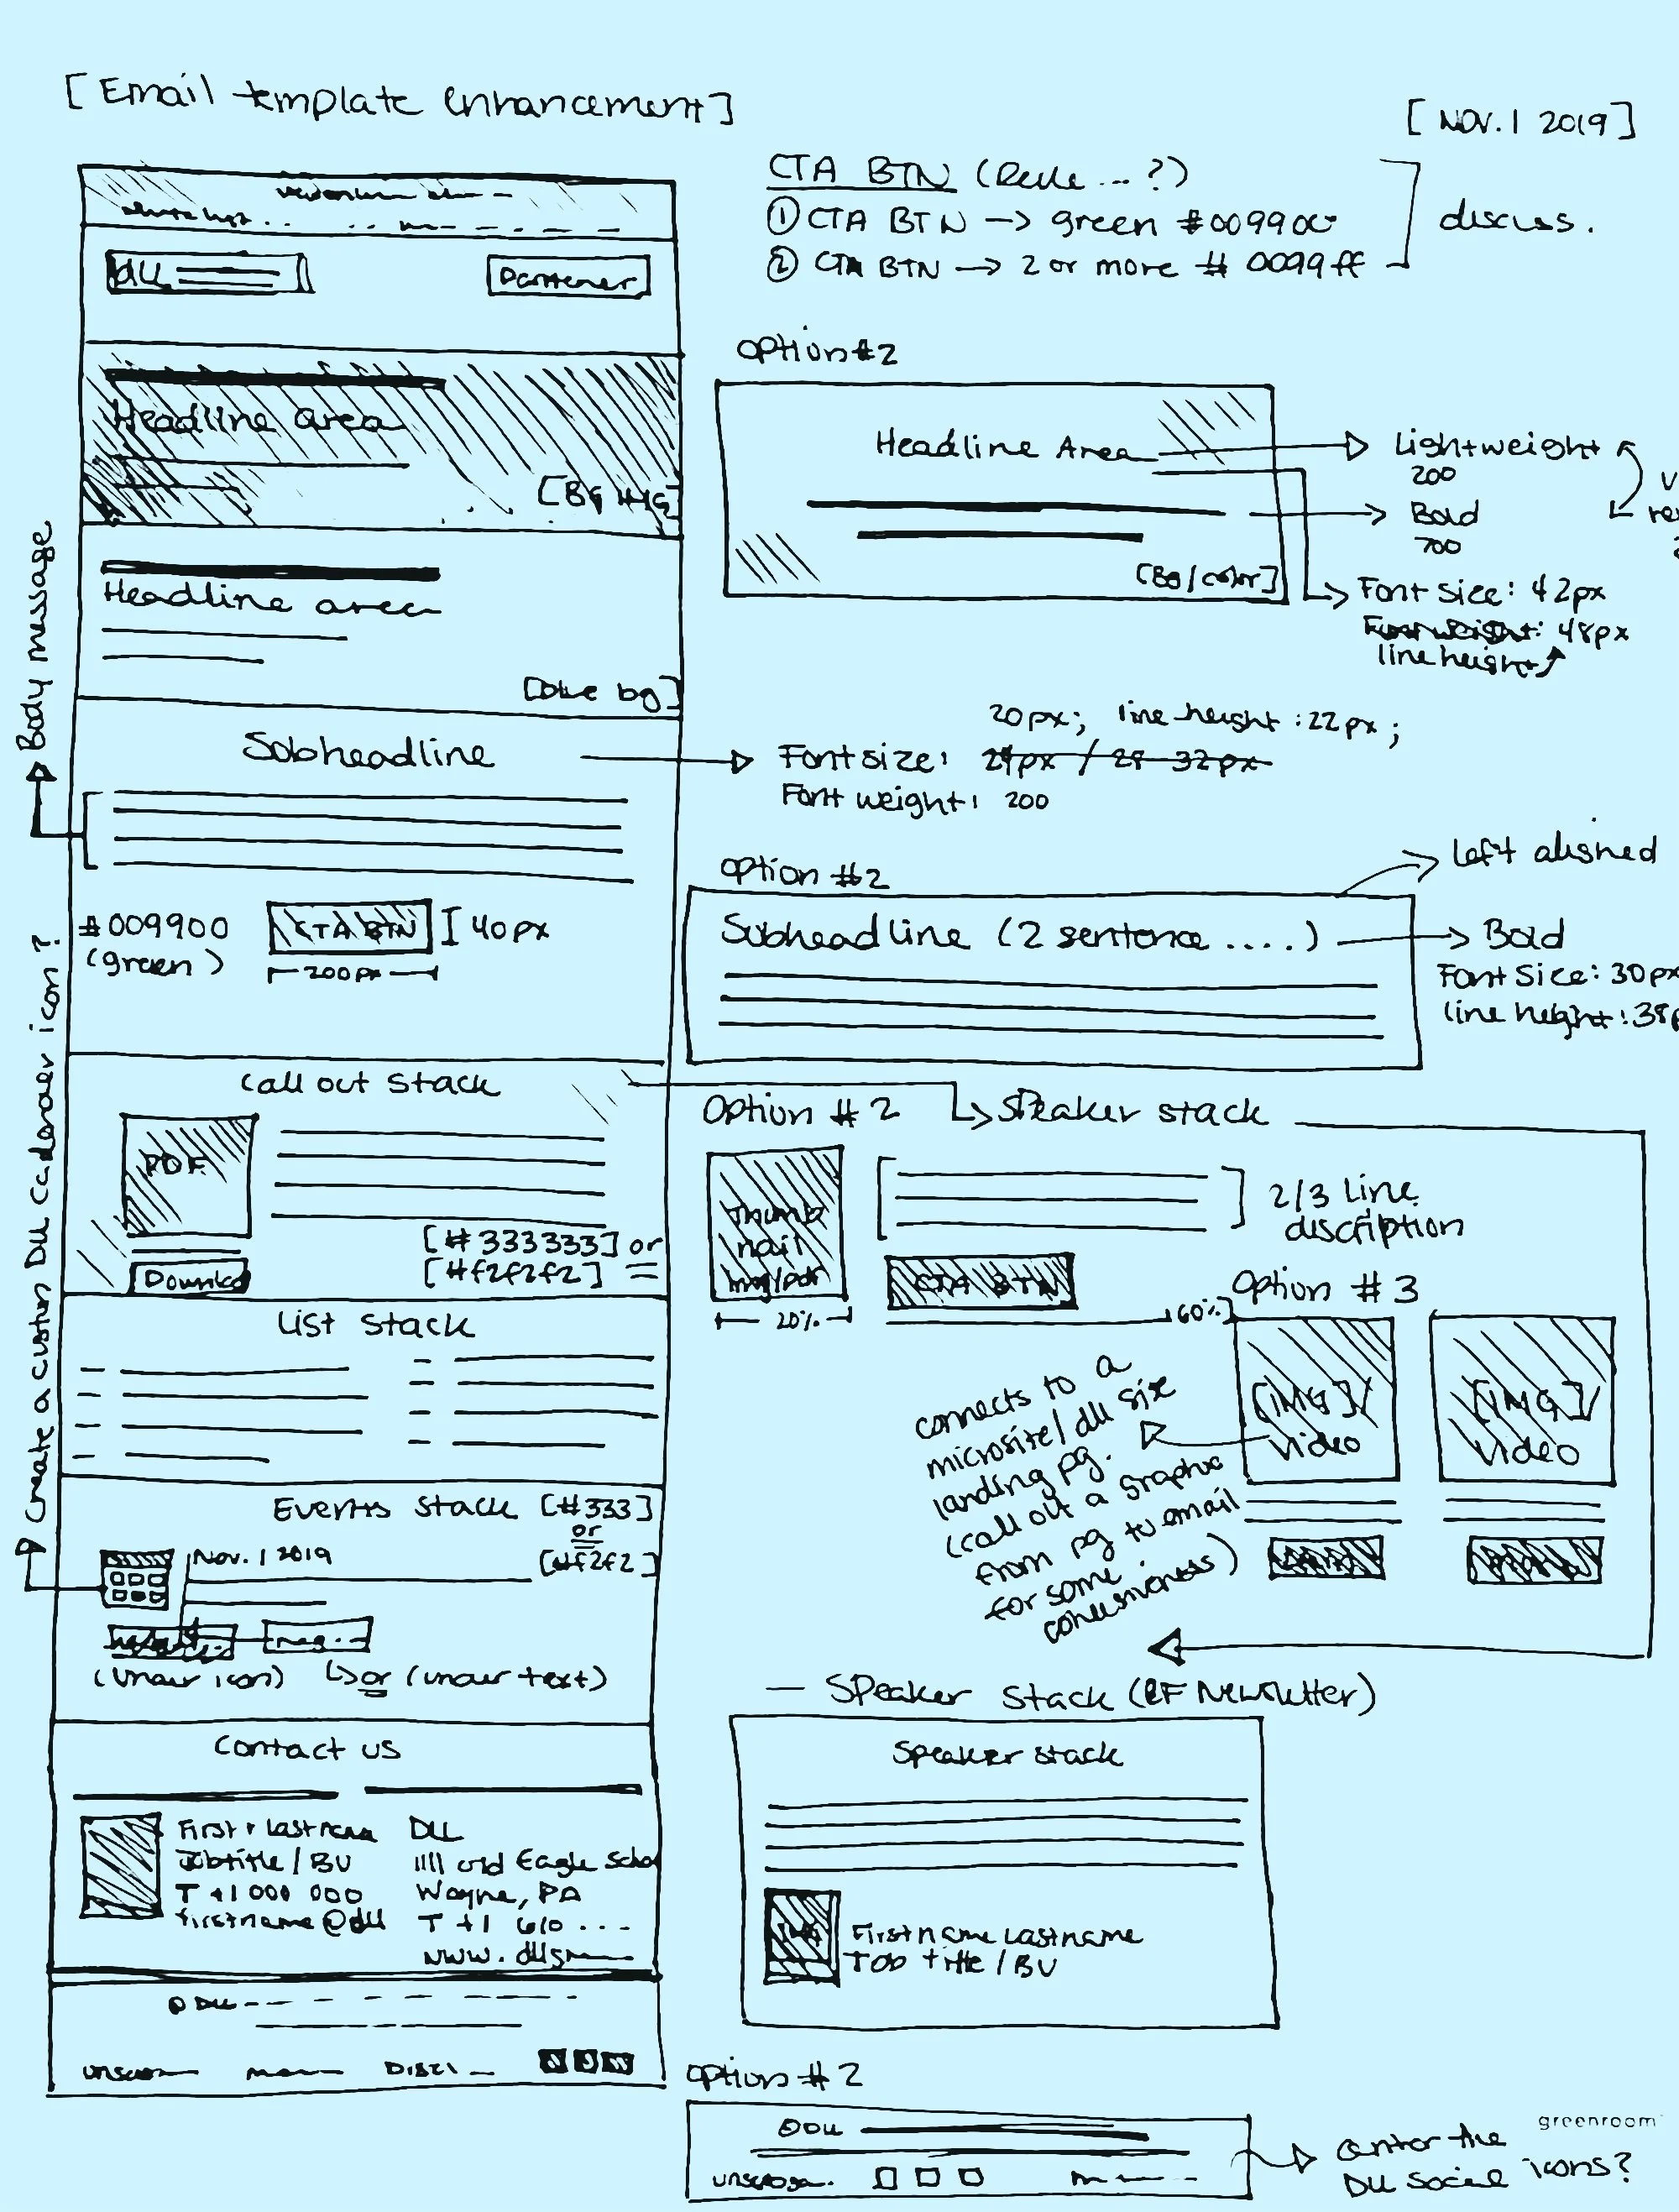 [Email template enhancement]
[NOV. 1 2019]
CTA BTN ( ...?)
① CTA BTN → green #009900
② CTA BTN → 2 or more # 0099ff
discuss.
DLL
Partener
Headline area
[BG IMG]
Headline area
[blue bg]
Option #2
Headline Area
[BG/color]
Lightweight
200
Bold
700
Font size: 42px
Font weight: 48px
line height
Body message
Subheadline
20px; line height: 22px;
Font size: 29px / 28 32px
Font weight: 200
#009900
(green)
CTA BTN
40px
200px
Option #2
Subheadline (2 sentence ....)
left aligned
Bold
Font Size: 30px
line height: 38p
Call out stack
PDF
[#333333] or
[#f2f2f2]
Option #2
Speaker stack
Thumb
nail
img/pdf
20%
2/3 line
discription
CTA BTN
60%
Option #3
[IMG]/
Video
[IMG]/
Video
connects to a
microsite/dll site
landing pg.
(call out a graphic
from pg to email
for some
cohesiveness)
List stack
Create a custom DLL calendaer icon?
Events stack [#333]
or
[#f2f2]
Nov. 1 2019
(under icon)
or (under text)
Contact us
First + lastname
Jobtitle / BU
T +1 000 000
firstname@dll
DLL
1111 old Eagle Scho
Wayne, PA
T +1 610 ...
www.dll
— Speaker Stack ( Newsletter)
Speaker stack
IMG
Firstname Lastname
Job title / BU
© DLL
Option #2
© DLL
center the
DLL social icons?
greenroom